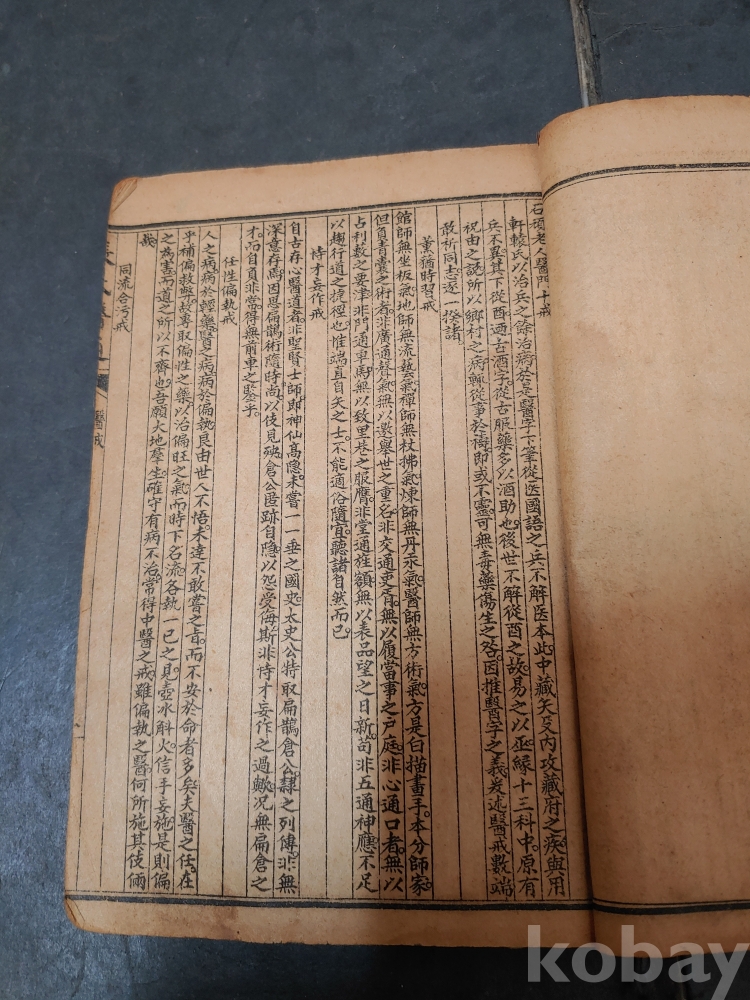 石頑老人醫門十戒
軒轅氏以治兵之餘治病於是醫字下筆從医國語之兵不解医本此中藏矢殳內攻藏府之疾與用
兵不異其下從酉酒古酒字從古服藥多以酒助也後世不解從酉之故易之以巫緣十三科中原有
祝由之說所以鄉村之病輒從事於禱即或不靈可無毒藥傷生之咎因推醫字之義爰述醫戒數端
敢祈同志逐一揆諸
薰猶時習戒
館師無坐板氣也師無流藝氣禪師無杖拂氣煉師無丹汞氣醫師無方術氣方是白描畫手本分師家
但負青囊之術者非廣通聲氣無以邀舉世之重名非交通吏胥無以履當事之戶庭非心通口者無以
占利藪之要津非門通車馬無以致里巷之服膺非堂通旌額無以表品望之日新苟非五通神應不足
以趨行道之捷徑也惟端直自矢之士不能適俗隨宜聽諸自然而已
恃才妄作戒
自古存心醫道者非聖賢士師即神仙高隱未嘗一一垂之國史太史公特取扁鵲倉公隸之列傳非無
深意存焉因思扁鵲術隨時尚以伎見殃倉公匿跡自隱以怨受侮斯非恃才妄作之過歟況無扁倉之
才而自負非常得無前車之鑒乎
任性偏執戒
人之病病於輕藥醫之病病於偏執良由世人不悟未達不敢嘗之旨而不安於命者多矣夫醫之任在
乎補偏救弊故專取偏性之藥以治偏旺之氣而時下名流各執一己之見壺水斛火信手妄施是則偏
之為害而道之所以不齊也吾願大地羣生確守有病不治常得中醫之戒雖偏執之醫何所施其伎倆
哉
同流合污戒
醫戒
kobay